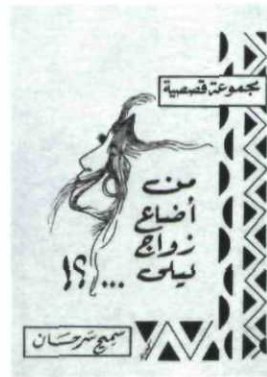 مجموعة قصصية
من
أضاع
زواج
ليلى
...؟!
سميح سرحان